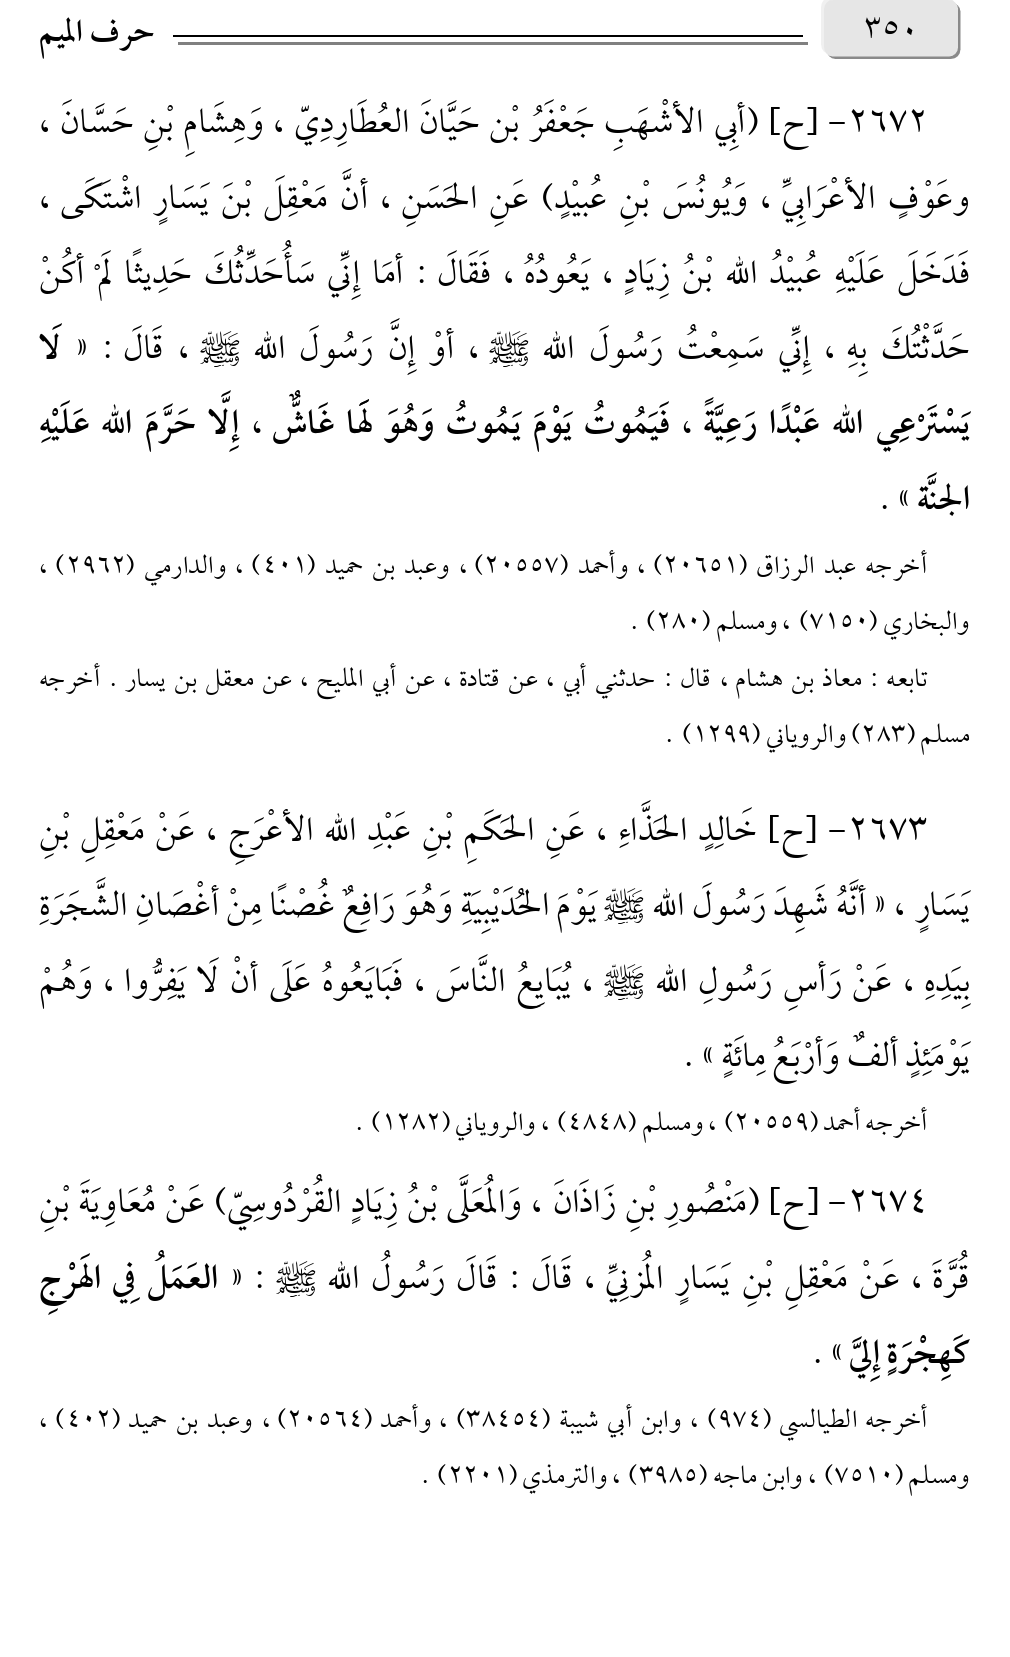 ٣٥٠
حرف الميم
٢٦٧٢- [ح] (أبِي الأشْهَبِ جَعْفَرُ بْن حَيَّانَ العُطَارِدِيّ ، وَهِشَامِ بْنِ حَسَّانَ ،
وعَوْفٍ الأعْرَابِيِّ ، وَيُونُسَ بْنِ عُبيْدٍ) عَنِ الحَسَنِ ، أنَّ مَعْقِلَ بْنَ يَسَارٍ اشْتَكَى ،
فَدَخَلَ عَلَيْهِ عُبيْدُ الله بْنُ زِيَادٍ ، يَعُودُهُ ، فَقَالَ : أمَا إِنِّي سَأُحَدِّثُكَ حَدِيثًا لَمْ أكُنْ
حَدَّثْتُكَ بِهِ ، إِنِّي سَمِعْتُ رَسُولَ الله ﷺ ، أوْ إِنَّ رَسُولَ الله ﷺ ، قَالَ : « لَا
يَسْتَرْعِي الله عَبْدًا رَعِيَّةً ، فَيَمُوتُ يَوْمَ يَمُوتُ وَهُوَ لَهَا غَاشٌّ ، إِلَّا حَرَّمَ الله عَلَيْهِ
الجنَّة » .
أخرجه عبد الرزاق (٢٠٦٥١) ، وأحمد (٢٠٥٥٧) ، وعبد بن حميد (٤٠١) ، والدارمي (٢٩٦٢) ،
والبخاري (٧١٥٠) ، ومسلم (٢٨٠) .
تابعه : معاذ بن هشام ، قال : حدثني أبي ، عن قتادة ، عن أبي المليح ، عن معقل بن يسار . أخرجه
مسلم (٢٨٣) والروياني (١٢٩٩) .
٢٦٧٣- [ح] خَالِدٍ الحَذَّاءِ ، عَنِ الحَكَمِ بْنِ عَبْدِ الله الأعْرَجِ ، عَنْ مَعْقِلِ بْنِ
يَسَارٍ ، « أنَّهُ شَهِدَ رَسُولَ الله ﷺ يَوْمَ الحُدَيْبِيَةِ وَهُوَ رَافِعٌ غُصْنًا مِنْ أغْصَانِ الشَّجَرَةِ
بِيَدِهِ ، عَنْ رَأسِ رَسُولِ الله ﷺ ، يُبَايِعُ النَّاسَ ، فَبَايَعُوهُ عَلَى أنْ لَا يَفِرُّوا ، وَهُمْ
يَوْمَئِذٍ ألفٌ وَأرْبَعُ مِائَةٍ » .
أخرجه أحمد (٢٠٥٥٩) ، ومسلم (٤٨٤٨) ، والروياني (١٢٨٢) .
٢٦٧٤- [ح] (مَنْصُورِ بْنِ زَاذَانَ ، وَالمُعَلَّى بْنُ زِيَادٍ القُرْدُوسِيّ) عَنْ مُعَاوِيَةَ بْنِ
قُرَّةَ ، عَنْ مَعْقِلِ بْنِ يَسَارٍ المُزنِيِّ ، قَالَ : قَالَ رَسُولُ الله ﷺ : « العَمَلُ فِي الهَرْجِ
كَهِجْرَةٍ إِليَّ » .
أخرجه الطيالسي (٩٧٤) ، وابن أبي شيبة (٣٨٤٥٤) ، وأحمد (٢٠٥٦٤) ، وعبد بن حميد (٤٠٢) ،
ومسلم (٧٥١٠) ، وابن ماجه (٣٩٨٥) ، والترمذي (٢٢٠١) .